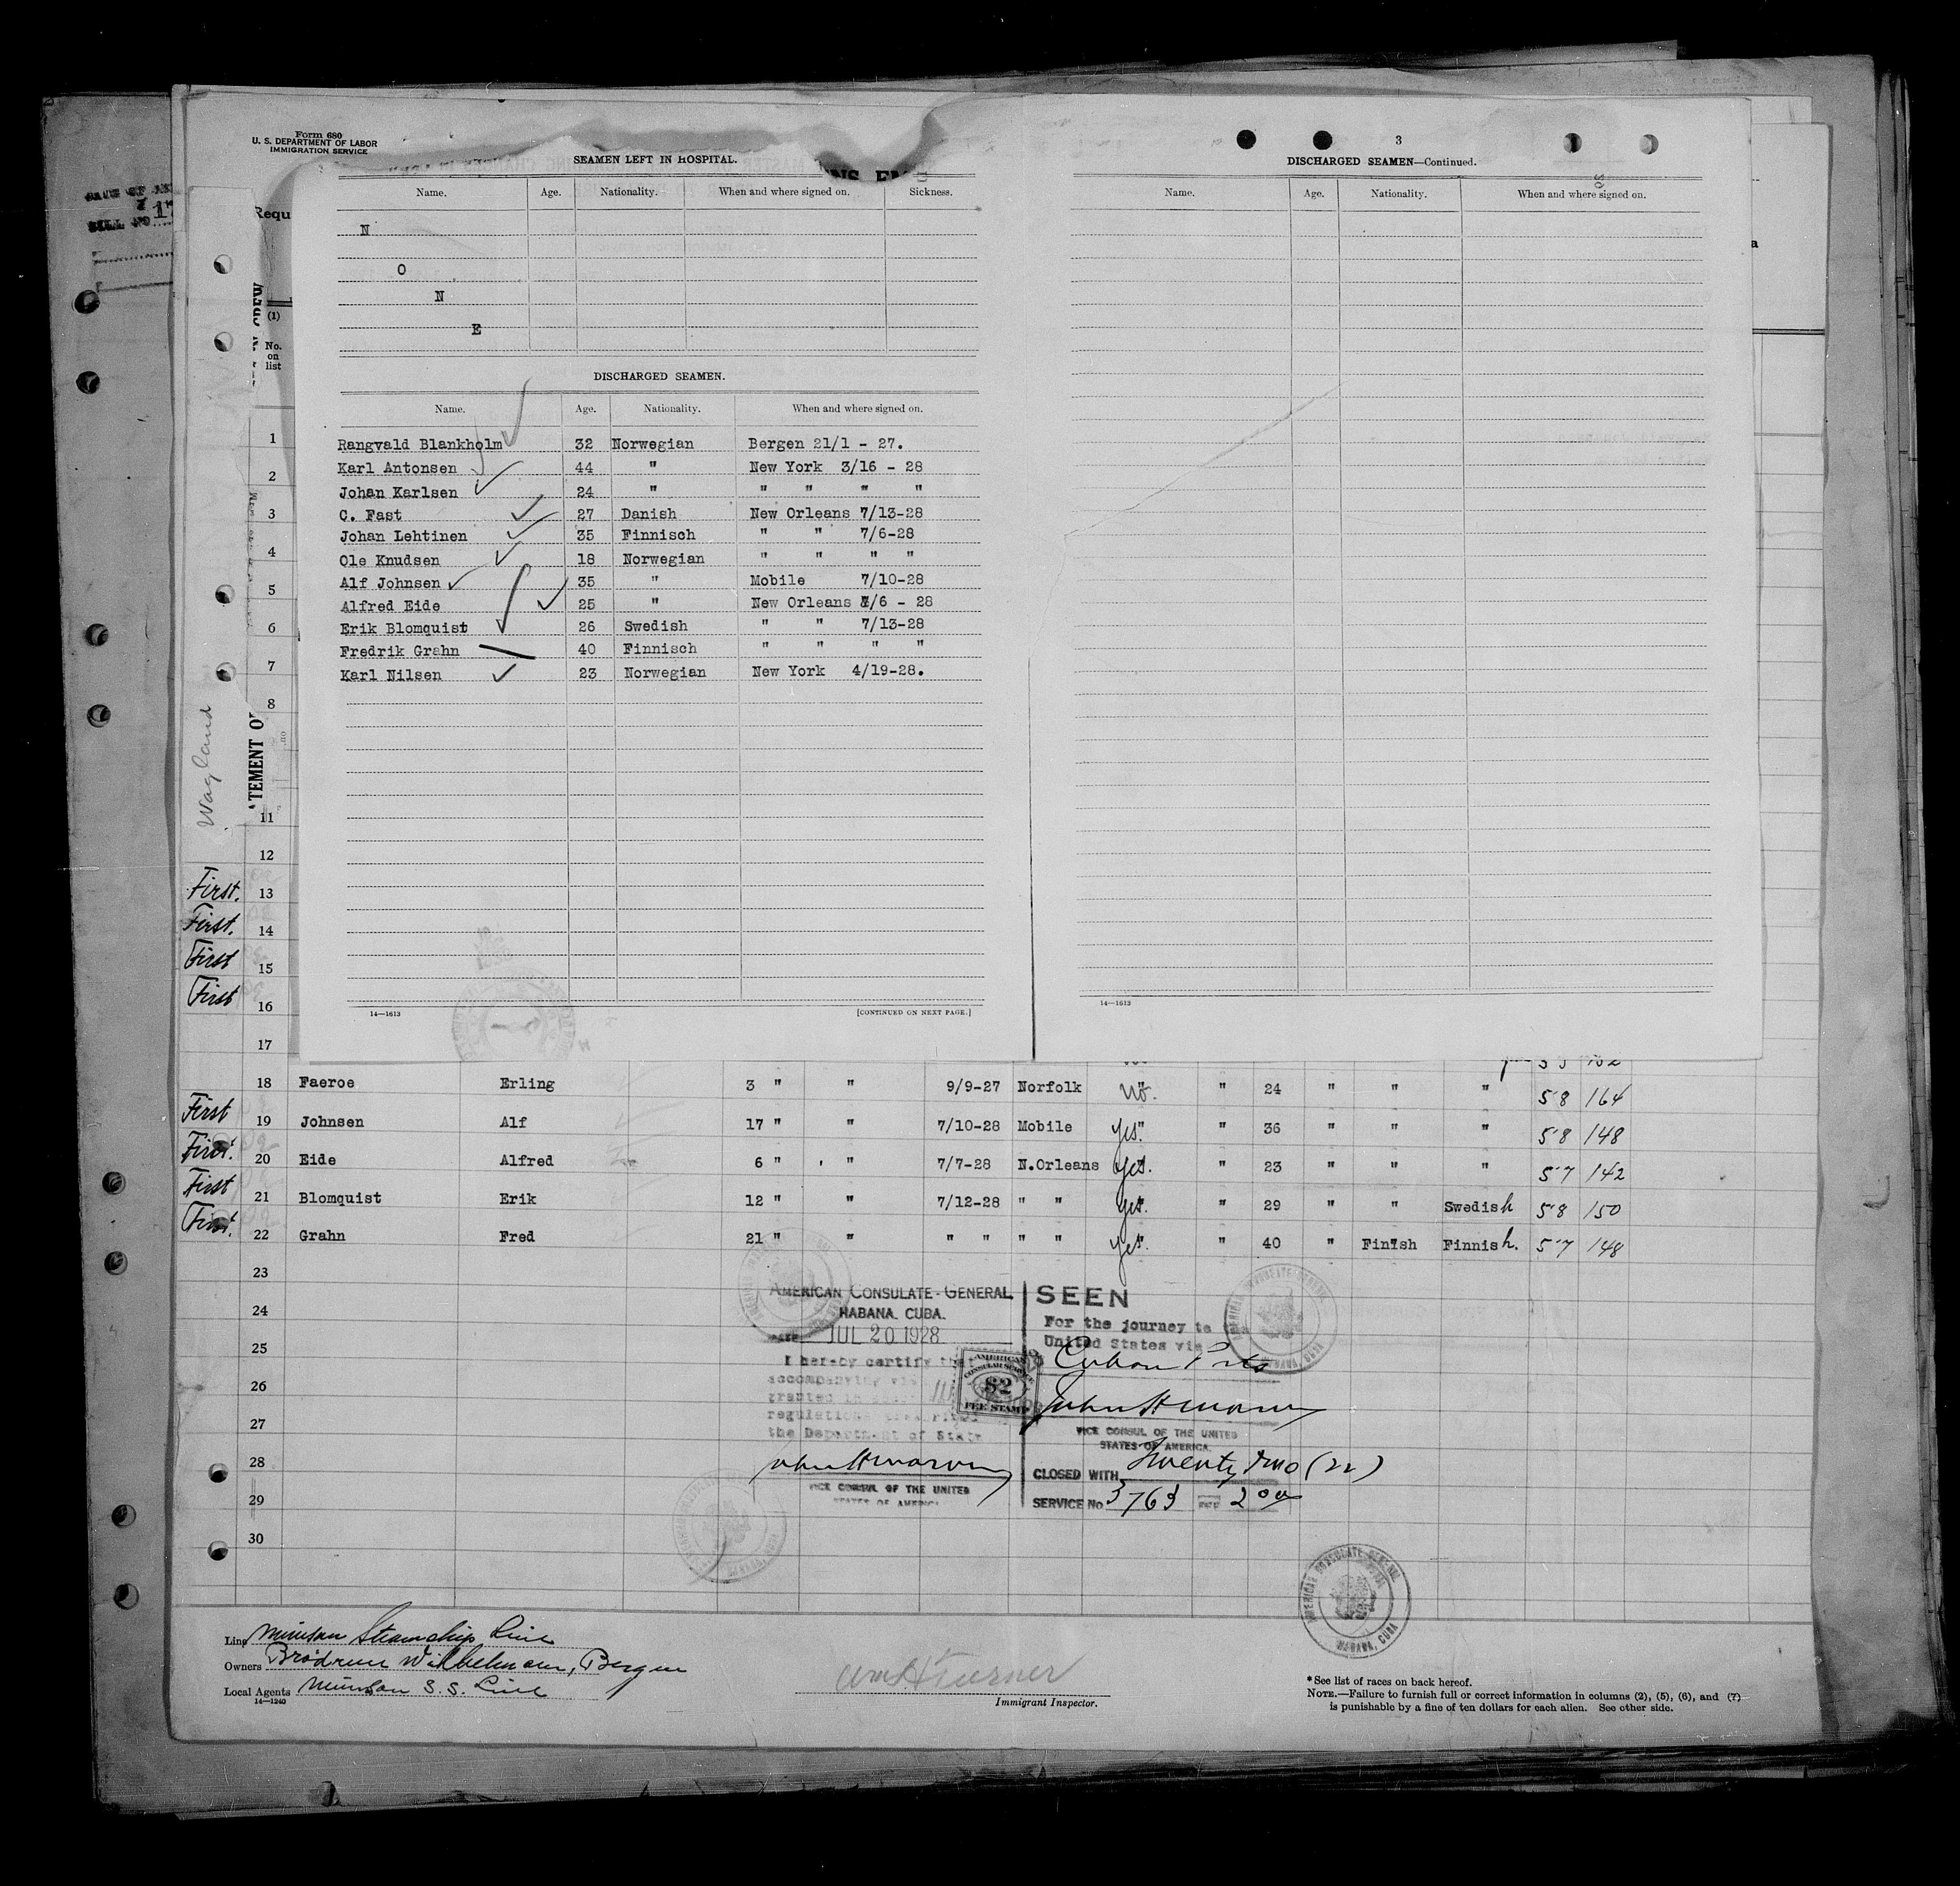 Form 680
U. S. DEPARTMENT OF LABOR
IMMIGRATION SERVICE
SEAMEN LEFT IN HOSPITAL.
Name. Age. Nationality. When and where signed on. Sickness.
N
O
N
E
DISCHARGED SEAMEN.
Name. Age. Nationality. When and where signed on.
Rangvald Blankholm 32 Norwegian Bergen 21/1 - 27.
Karl Antonsen 44 " New York 3/16 - 28
Johan Karlsen 24 " " " " "
C. Fast 27 Danish New Orleans 7/13-28
Johan Lehtinen 35 Finnisch " " 7/6-28
Ole Knudsen 18 Norwegian " " " "
Alf Johnsen 35 " Mobile 7/10-28
Alfred Eide 25 " New Orleans 7/6 - 28
Erik Blomquist 26 Swedish " " 7/13-28
Fredrik Grahn 40 Finnisch " " " "
Karl Nilsen 23 Norwegian New York 4/19-28.
14—1613 [CONTINUED ON NEXT PAGE.]
3
DISCHARGED SEAMEN—Continued.
Name. Age. Nationality. When and where signed on.
14—1613
Requ
(1)
No.
on
list
1
2
3
4
5
6
7
8
11
12
First. 13
First. 14
First 15
First 16
17
Wagland
18 Faeroe Erling 3 " " 9/9-27 Norfolk No. " 24 " " " 5'8 164
First 19 Johnsen Alf 17 " " 7/10-28 Mobile yes. " 36 " " " 5'8 148
First. 20 Eide Alfred 6 " " 7/7-28 N.Orleans yes. " 23 " " " 5'7 142
First 21 Blomquist Erik 12 " " 7/12-28 " " yes. " 29 " " Swedish 5'8 150
First. 22 Grahn Fred 21 " " " " " " yes. " 40 " Finish Finnish. 5'7 148
23
24
25
26
27
28
29
30
AMERICAN CONSULATE-GENERAL
HABANA, CUBA.
DATE JUL 20 1928
I hereby certify that
accompanying
granted
regulations
the Department of State
VICE CONSUL OF THE UNITED
STATES OF AMERICA
AMERICAN
CONSULAR SERVICE
$2
FEE STAMP
SEEN
For the journey to the
United States via
Cuban Ports
VICE CONSUL OF THE UNITED
STATES OF AMERICA.
CLOSED WITH Twenty two (22)
SERVICE No 3763 2 00
AMERICAN CONSULATE GENERAL
HABANA, CUBA
Line Munson Steamship Line
Owners Brödrene Wilhelmsen, Bergen
Local Agents Munson S.S. Line
14—1240
Wm H Turner
Immigrant Inspector.
* See list of races on back hereof.
NOTE.—Failure to furnish full or correct information in columns (2), (5), (6), and (7)
is punishable by a fine of ten dollars for each alien. See other side.